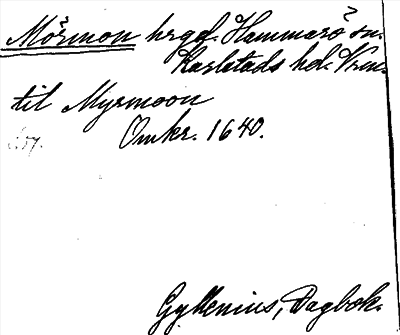 Mörmon hrgd. Hammarö sn.
Karlstads hd. Vrm.
til Myrmoon
Omkr. 1640.
Gyllenius, Dagbok.